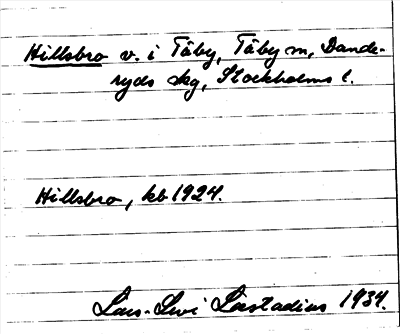 Hillsbro v. i Täby, Täby sn, Dande-
ryds skg, Stockholms l.
Hillsbro, kb 1924.
Lars-Levi Læstadius 1934.